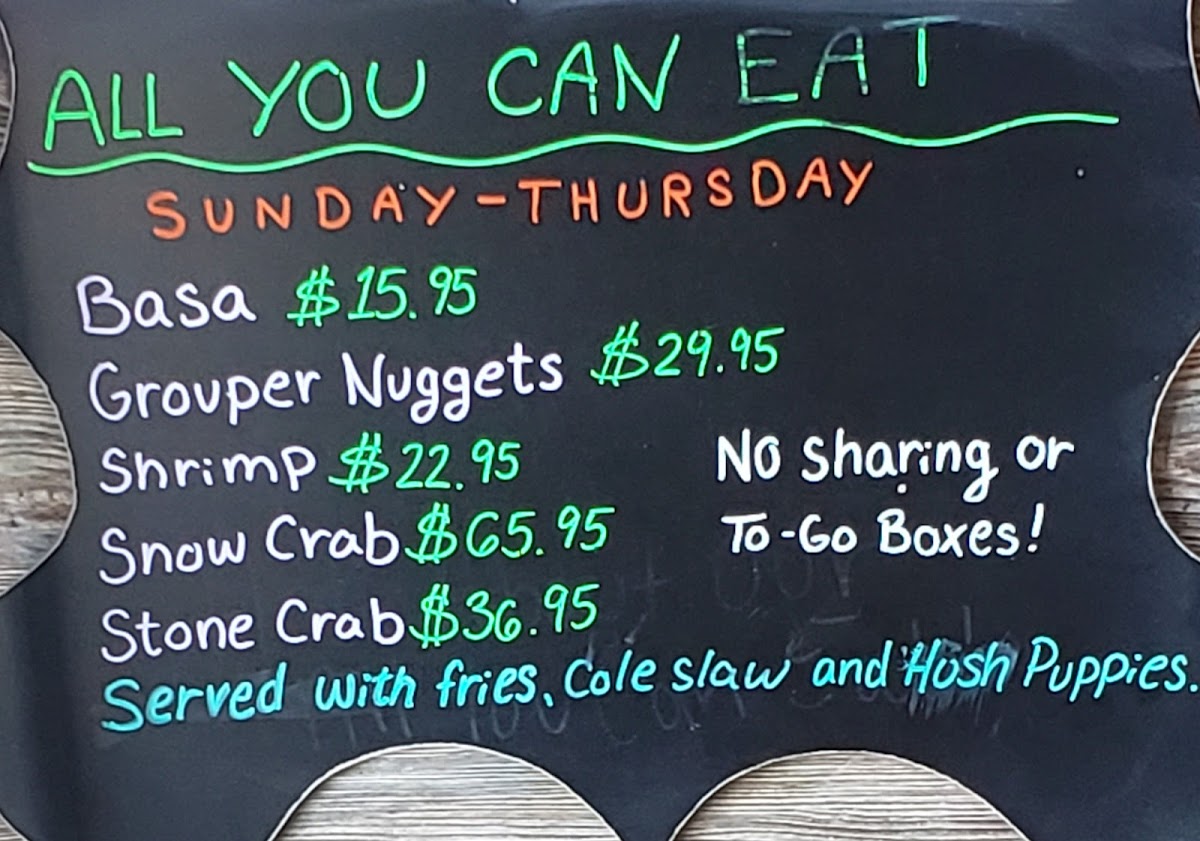 ALL YOU CAN EAT
SUNDAY-THURSDAY
Basa $15.95
Grouper Nuggets $29.95
Shrimp $22.95
Snow Crab $65.95
Stone Crab $36.95
No Sharing or
To-Go Boxes!
Served with fries, Cole slaw and Hush Puppies.